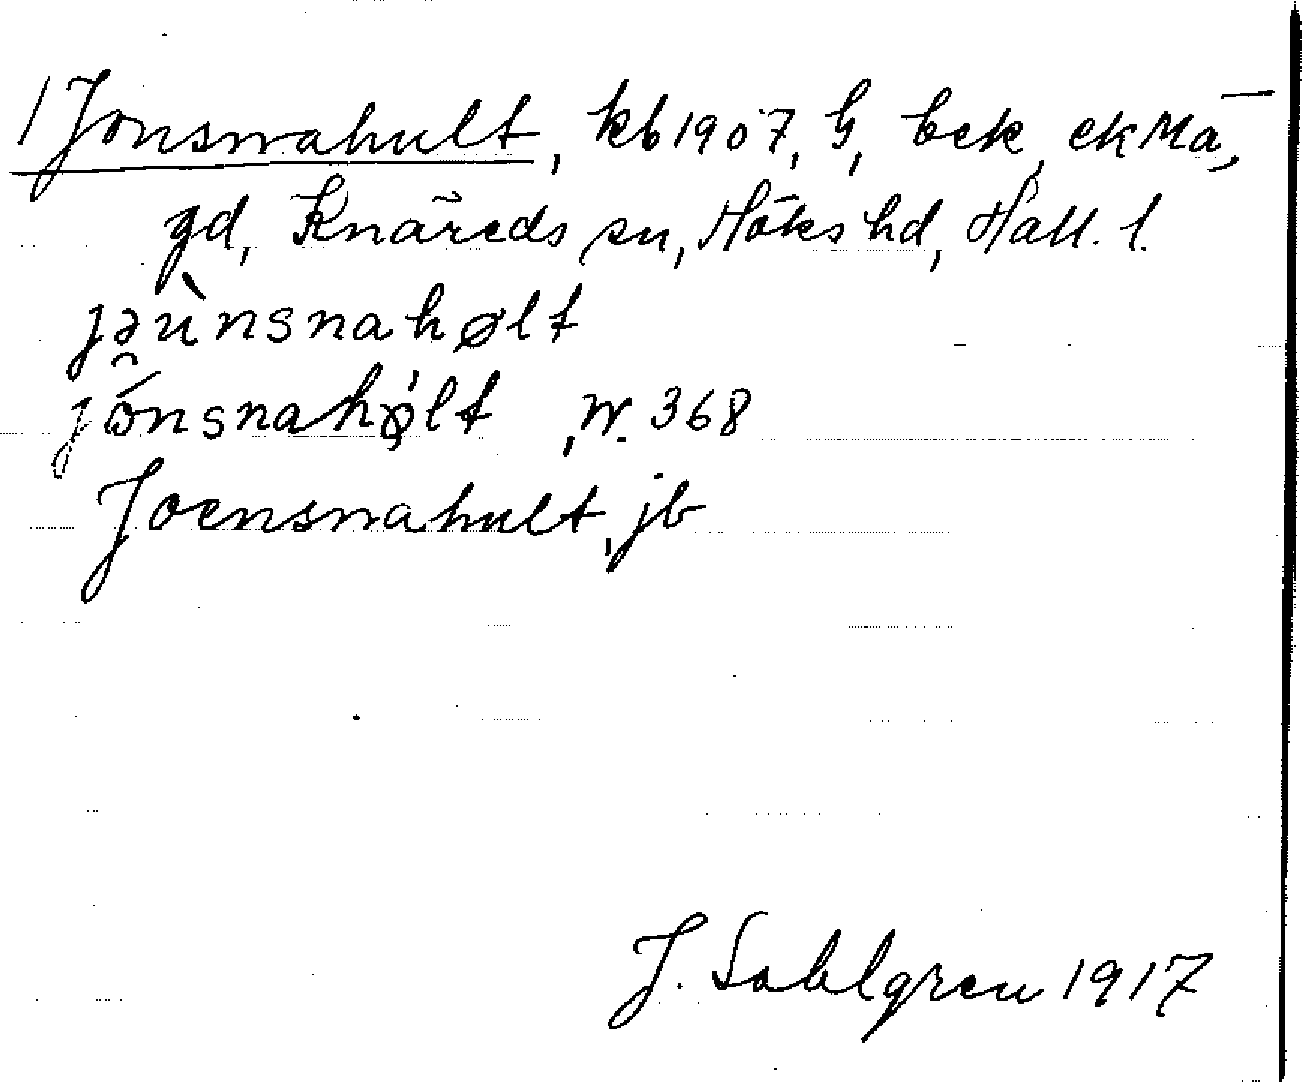 / Jonsnahult, kb 1907, G, bek, ekMa,
gd, Knäreds sn, Höks hd, Hall. l.
jə̯ùnsnahølt
jónsnahø̀lt, W. 368
Joensnahult, jb
J. Sahlgren 1917